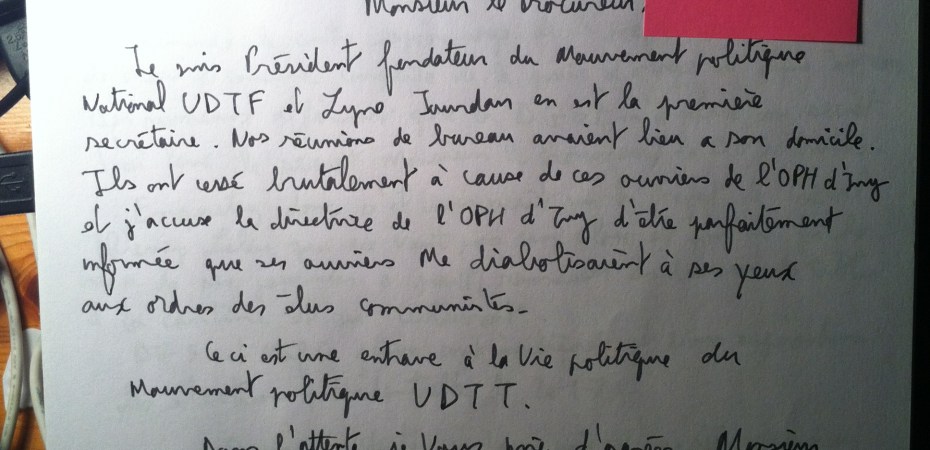 Monsieur le Procureur,
Je suis Président fondateur du Mouvement politique
National UDTF et Jourdan en est la première
secrétaire. Nos réunions de bureau avaient lieu a son domicile.
Ils ont cessé brutalement à cause de ces ouvriers de l'OPH d'Ivry
et j'accuse la directrice de l'OPH d'Ivry d'être parfaitement
informée que ses ouvriers me diabolisaient à ses yeux
aux ordres des élus communistes.
Ceci est une entrave à la Vie politique du
Mouvement politique UDTT.
Dans l'attente je Vous prie d'agréer, Monsieur